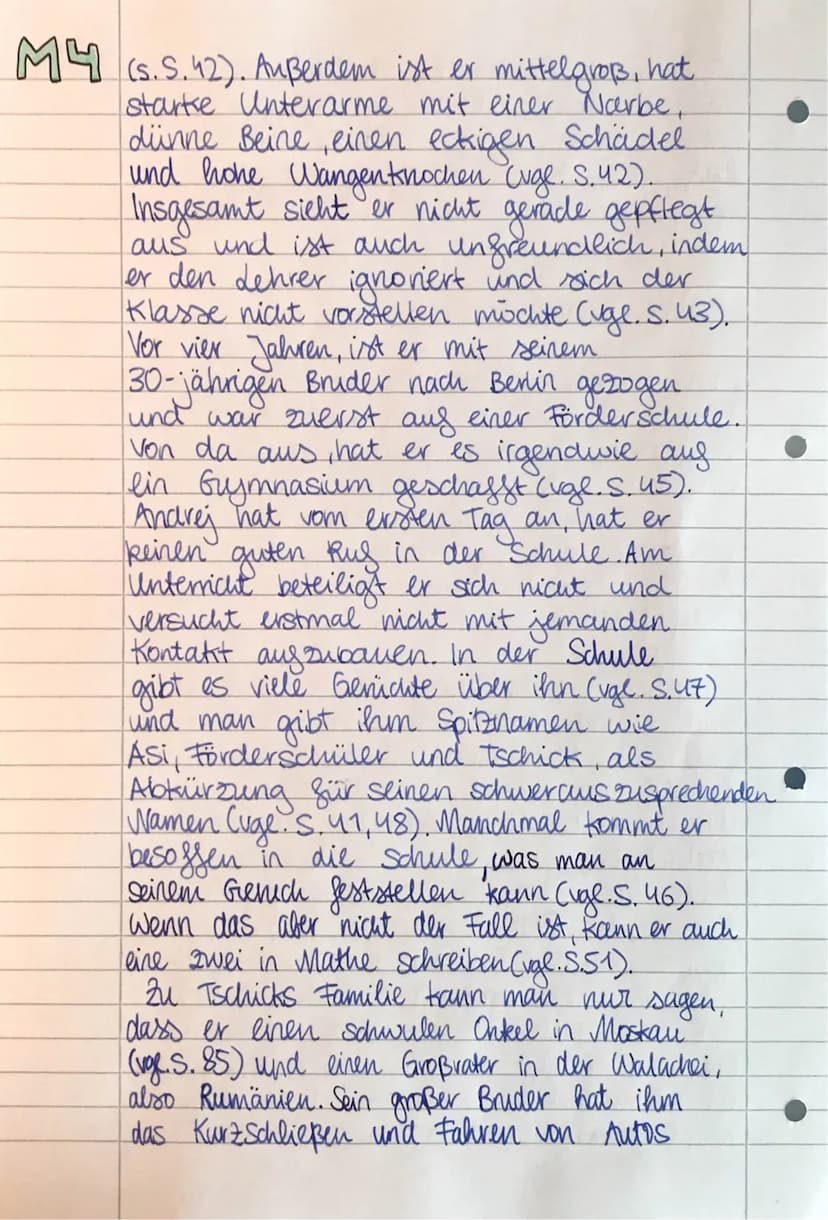 M4
(s.S.42). Außerdem ist er mittelgroß, hat
starke Unterarme mit einer Narbe,
dünne Beine, einen eckigen Schädel
und hohe Wangenknochen (vgl. S.42).
Insgesamt sieht er nicht gerade gepflegt
aus und ist auch unfreundlich, indem
er den Lehrer ignoriert und sich der
Klasse nicht vorstellen möchte (vgl. S. 43).
Vor vier Jahren, ist er mit seinem
30-jährigen Bruder nach Berlin gezogen
und war zuerst auf einer Förderschule.
Von da aus, hat er es irgendwie auf
ein Gymnasium geschafft (vgl. S. 45).
Andrej hat vom ersten Tag an, hat er
keinen guten Ruf in der Schule. Am
Unterricht beteiligt er sich nicht und
versucht erstmal nicht mit jemanden
Kontakt aufzubauen. In der Schule
gibt es viele Gerüchte über ihn (vgl. S.47)
und man gibt ihm Spitznamen wie
Asi, Förderschüler und Tschick, als
Abkürzung für seinen schwerauszusprechenden
Namen (vgl. S. 41, 48). Manchmal kommt er
besoffen in die Schule, was man an
seinem Geruch feststellen kann (vgl. S. 46).
Wenn das aber nicht der Fall ist, kann er auch
eine zwei in Mathe schreiben (vgl. S.51).
Zu Tschicks Familie kann man nur sagen,
dass er einen schwulen Onkel in Moskau
(vgl. S. 85) und einen Großvater in der Walachei,
also Rumänien. Sein großer Bruder hat ihm
das Kurzschließen und Fahren von Autos